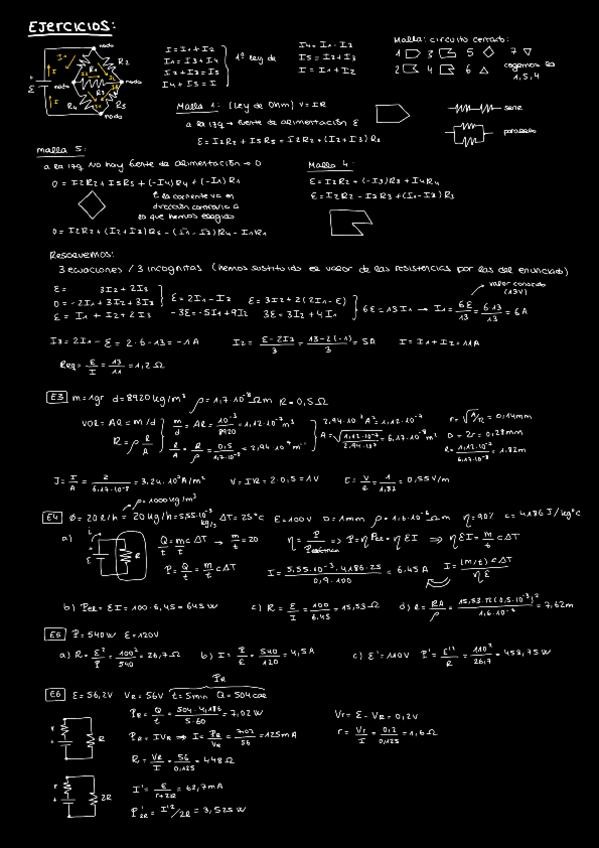 EJERCICIOS:
nodo
I = I1 + I2
I1 = I3 + I4
I2 + I3 = I5
I4 + I5 = I
1ª ley de
I4 = I1 - I3
I5 = I2 + I3
I = I1 + I2
Malla: circuito cerrado:
1 3 5 7
2 4 6
cogemos la
1, 5, 4
I R2 nodo nodo ε R4 R5 nodo
Malla 1: (Ley de Ohm) V = IR
a la izq → fuente de alimentación ε
ε = I2R2 + I5R5 = I2R2 + (I2 + I3) R5
serie
paralelo
malla 5:
a la izq no hay fuente de alimentación → 0
0 = I2R2 + I3R3 + (-I4)R4 + (-I1)R1
la corriente va en
dirección contraria a
lo que hemos elegido
Malla 4:
ε = I2R2 + (-I3)R3 + I4R4
Resolvemos:
3 ecuaciones / 3 incognitas (hemos sustituido el valor de las resistencias por las del enunciado)
valor conocido
(13V)
ε = 3I2 + 2I3
0 = -2I1 + 3I2 + 3I3
ε = I1 + I2 + 2I3
ε = 2I1 - I3
-3ε = -5I1 + 9I2
ε = 3I2 + 2(2I1 - ε)
3ε = 3I2 + 4I1
6ε = 13I1 → I1 = 6ε/13 = 6·13/13 = 6A
I3 = 2I1 - ε = 2·6 - 13 = -1A
I2 = (ε - 2I3)/3 = (13 - 2(-1))/3 = 5A
I = I1 + I2 = 11A
Req = ε/I = 13/11 = 1,2Ω
E3 m = 1gr d = 8920 kg/m³ ρ = 1,7·10⁻⁸ Ωm R = 0,5Ω
VOL = Aℓ = m/d
R = ρ ℓ/A
m/d = Aℓ = 10⁻³/8920 = 1,12·10⁻⁷ m³
ℓ/A = R/ρ = 0,5/1,7·10⁻⁸ = 2,94·10⁷ m⁻¹
2,94·10⁷ A² = 1,12·10⁻⁷
A = √(1,12·10⁻⁷/2,94·10⁷) = 6,17·10⁻⁸ m²
r = √A/π = 0,14mm
D = 2r = 0,28mm
ℓ = 1,12·10⁻⁷/6,17·10⁻⁸ = 1,82m
J = I/A = 2/6,17·10⁻⁸ = 3,24·10⁷ A/m²
V = IR = 2·0,5 = 1V
E = V/ℓ = 1/1,82 = 0,55 V/m
ρ = 1000 kg/m³
E4 Ø = 20 ℓ/h = 20 kg/h = 5,55·10⁻³ kg/s ΔT = 25°C ε = 100V D = 1mm ρ = 1,6·10⁻⁶ Ωm η = 90% c = 4186 J/kg°C
a)
Q/t = m/t cΔT → m/t = 20
P = Q/t = m/t cΔT
η = P/Pteórica ⇒ P = ηPel = ηεI ⇒ ηεI = m/t cΔT
I = 5,55·10⁻³·4186·25/0,9·100 = 6.45 A
I = (m/t) cΔT/ηε
b) Pel = εI = 100·6,45 = 645W
c) R = ε/I = 100/6.45 = 15,53Ω
d) ℓ = RA/ρ = 15,53 π(0,5·10⁻³)²/1,6·10⁻⁶ = 7,62m
E5 P = 540W ε = 120V
a) R = ε²/P = 120²/540 = 26,7Ω
b) I = P/ε = 540/120 = 4,5A
c) ε' = 110V P' = ε'²/R = 110²/26,7 = 453,75W
PR
E6 ε = 56,2V VR = 56V t = 5min Q = 504cal
PR = Q/t = 504·4,186/5·60 = 7,02W
PR = IVR ⇒ I = PR/VR = 7,02/56 = 125mA
R = VR/I = 56/0,125 = 448Ω
Vr = ε - VR = 0,2V
r = Vr/I = 0,2/0,125 = 1,6Ω
r R
r 2R
I' = ε/r+2R = 62,7mA
P'2R = I'² 2R = 3,525W